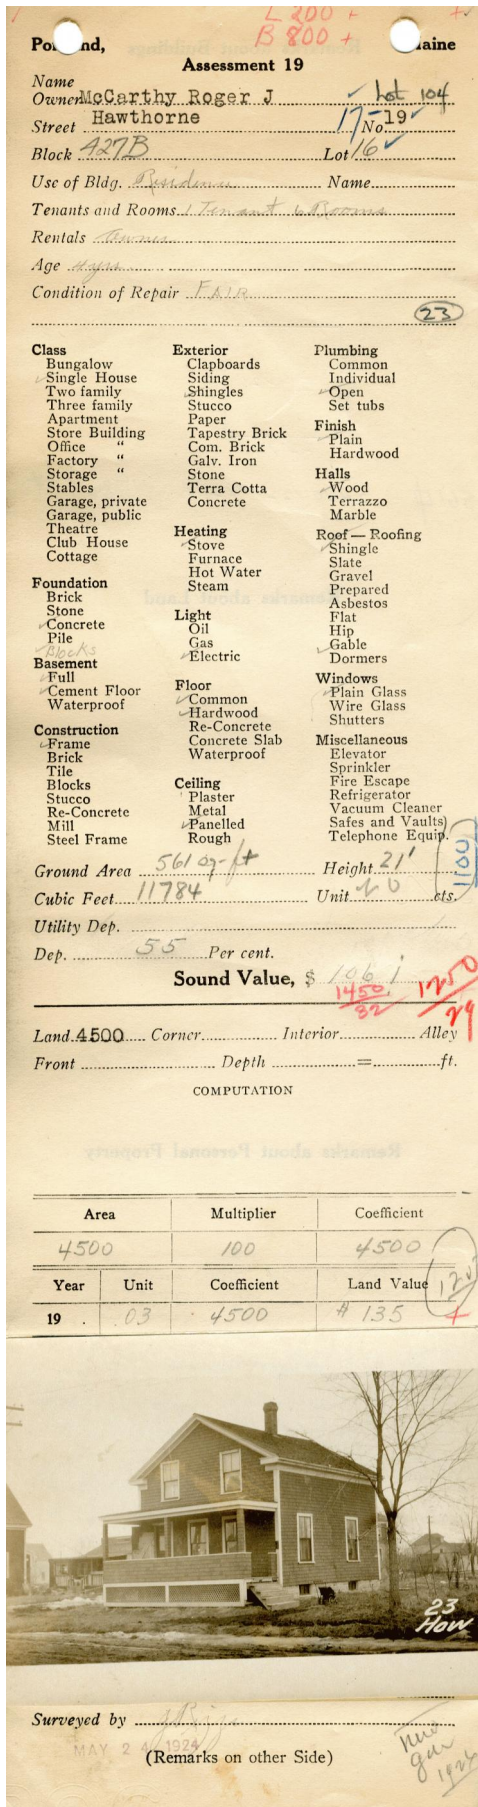 L 200 +
B 800 +
Po nd, aine
Assessment 19
Name
Owner McCarthy Roger J ✓ Lot 104
Street Hawthorne 17-No 19 ✓
Block 427B Lot 16 ✓
Use of Bldg. Residence Name
Tenants and Rooms 1 Tenant 6 Rooms
Rentals Owner
Age 4 yrs.
Condition of Repair FAIR
23
Class
Bungalow
✓ Single House
Two family
Three family
Apartment
Store Building
Office "
Factory "
Storage "
Stables
Garage, private
Garage, public
Theatre
Club House
Cottage
Foundation
Brick
Stone
✓ Concrete
Pile
✓ Blocks
Basement
✓ Full
✓ Cement Floor
Waterproof
Construction
✓ Frame
Brick
Tile
Blocks
Stucco
Re-Concrete
Mill
Steel Frame
Exterior
Clapboards
Siding
✓ Shingles
Stucco
Paper
Tapestry Brick
Com. Brick
Galv. Iron
Stone
Terra Cotta
Concrete
Heating
✓ Stove
Furnace
Hot Water
Steam
Light
Oil
Gas
✓ Electric
Floor
✓ Common
✓ Hardwood
Re-Concrete
Concrete Slab
Waterproof
Ceiling
Plaster
Metal
✓ Panelled
Rough
Plumbing
Common
Individual
✓ Open
Set tubs
Finish
✓ Plain
Hardwood
Halls
✓ Wood
Terrazzo
Marble
Roof — Roofing
✓ Shingle
Slate
Gravel
Prepared
Asbestos
Flat
Hip
✓ Gable
Dormers
Windows
✓ Plain Glass
Wire Glass
Shutters
Miscellaneous
Elevator
Sprinkler
Fire Escape
Refrigerator
Vacuum Cleaner
Safes and Vaults
Telephone Equip.
1100
Ground Area 561 sq-ft Height 21'
Cubic Feet 11784 Unit 20 cts.
Utility Dep.
Dep. 55 Per cent.
Sound Value, $ 1061
1450
32
1250
29
Land 4500 Corner Interior Alley
Front Depth = ft.
COMPUTATION
Area Multiplier Coefficient
4500 100 4500
Year Unit Coefficient Land Value
19 . .03 4500 # 135
+
23
How
Surveyed by
MAY 24 1924
(Remarks on other Side)
1924